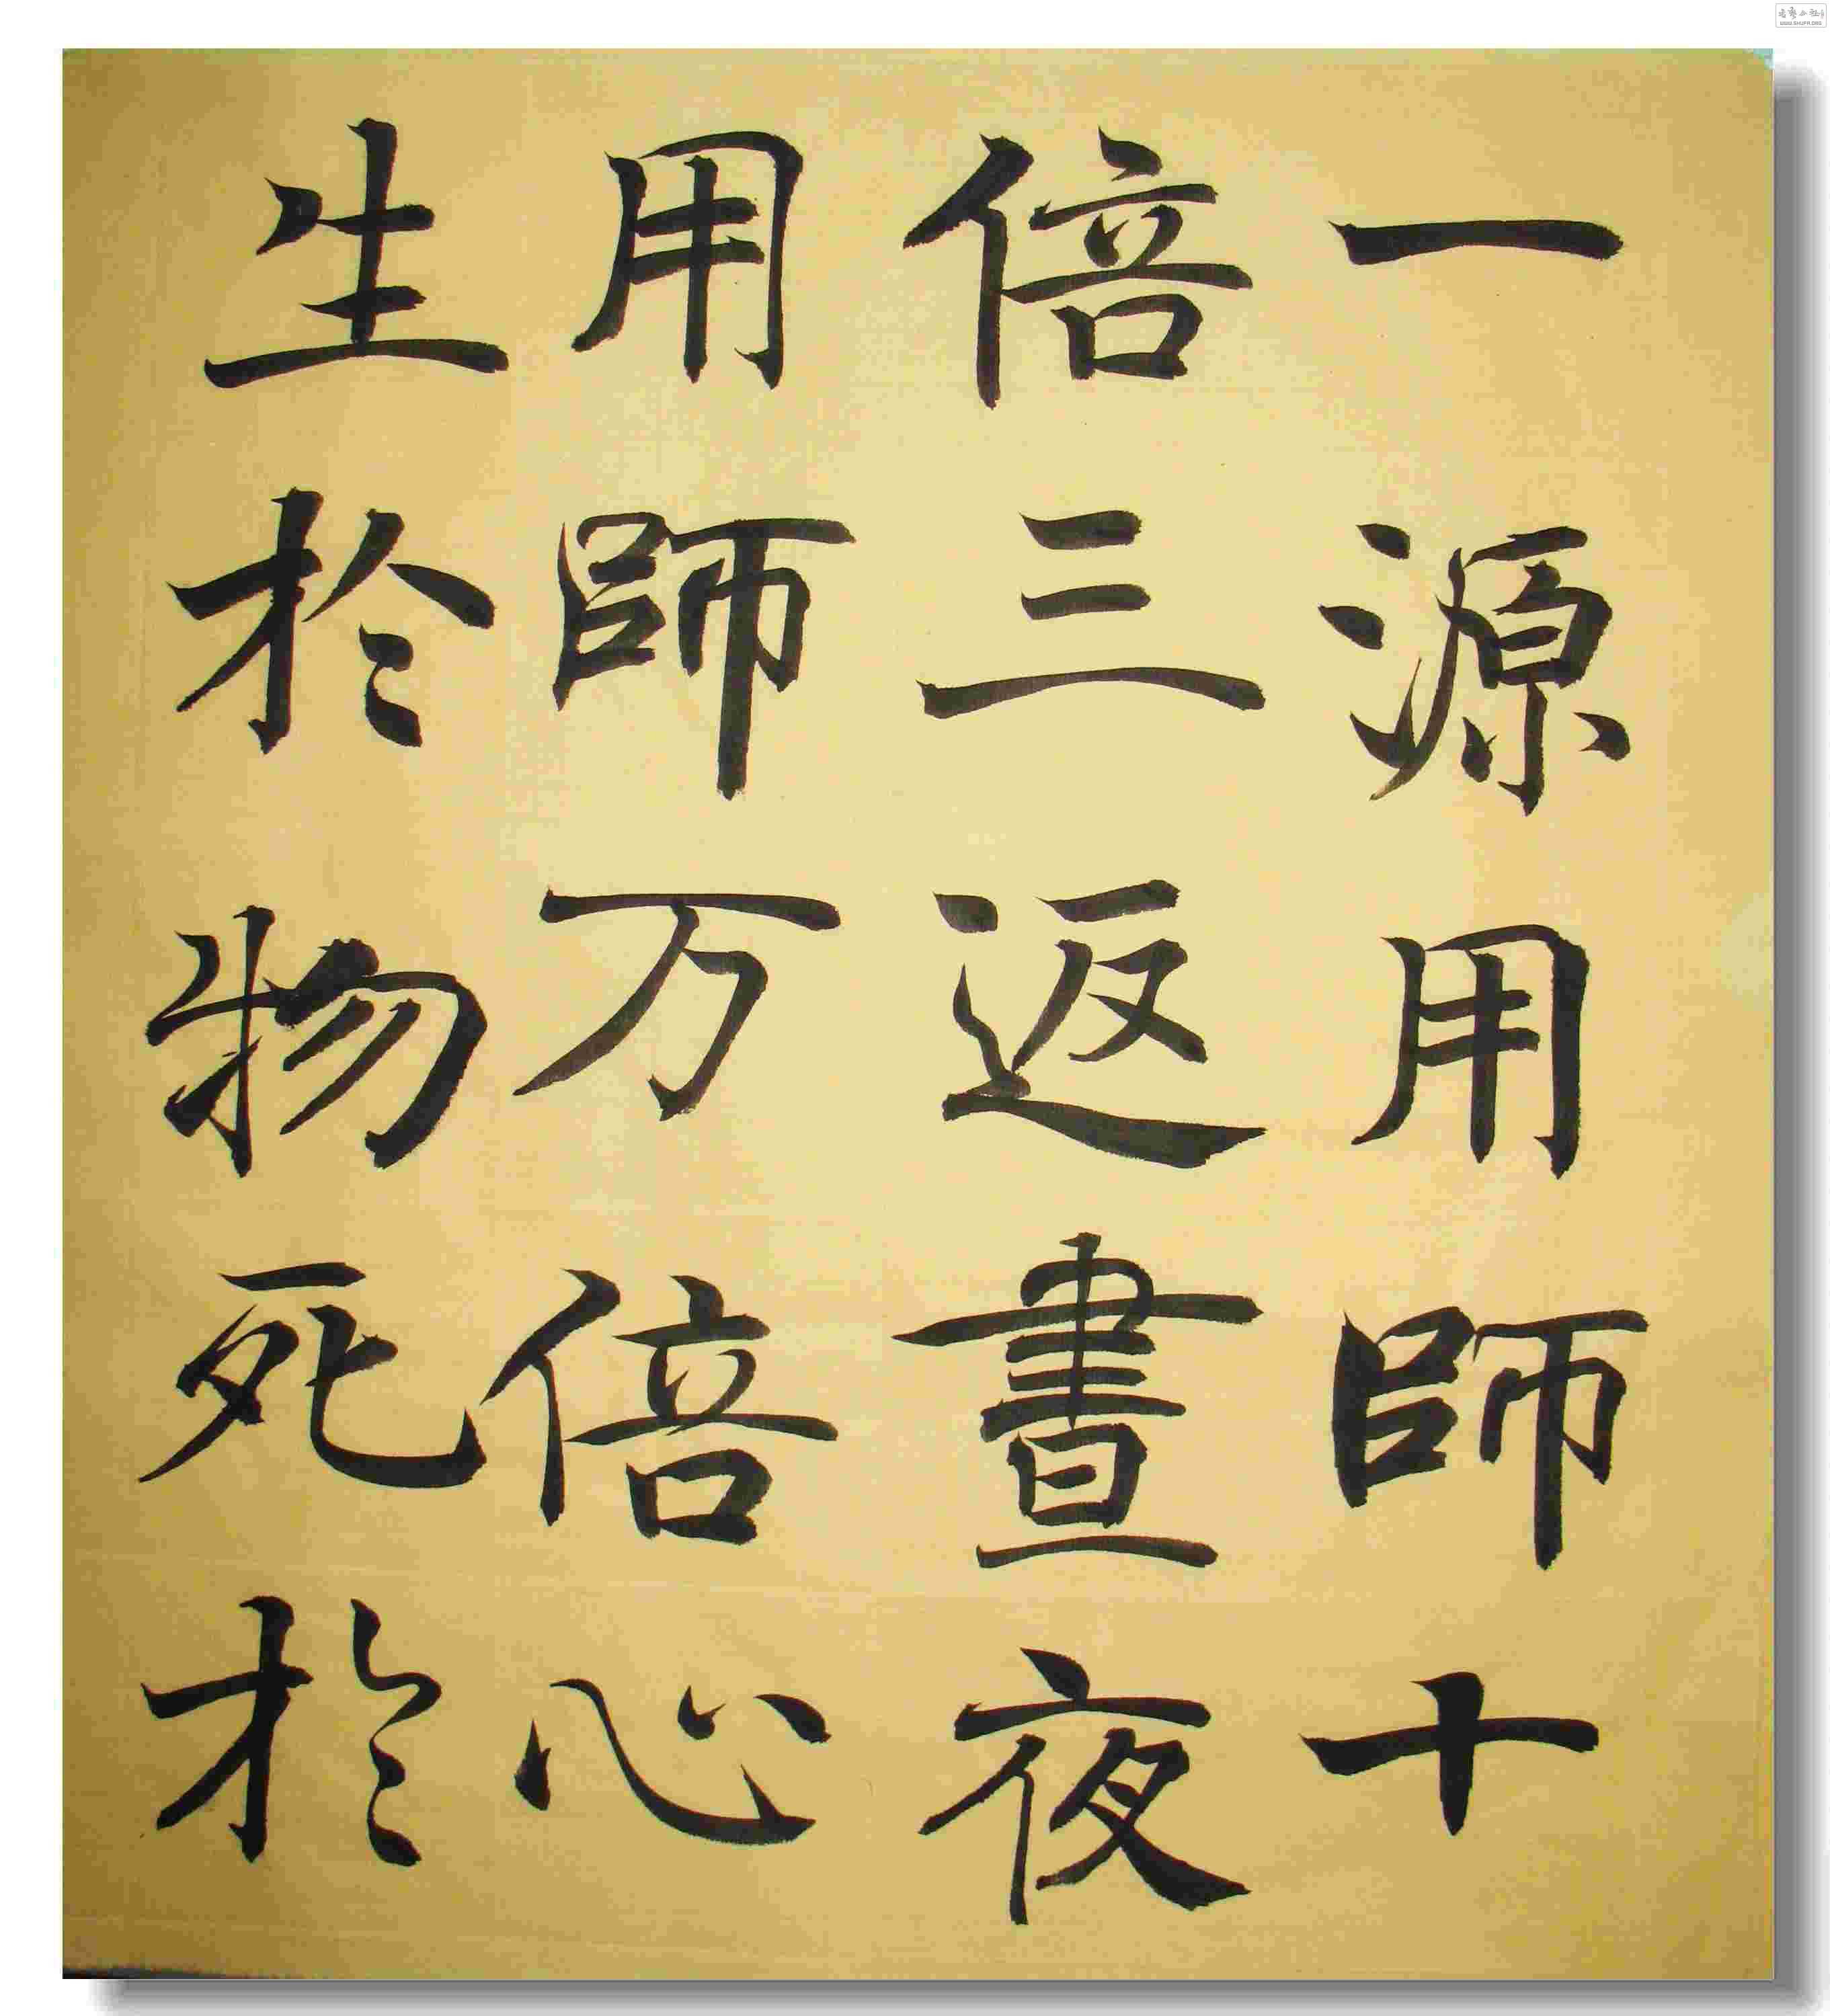 一源用師十
倍三返晝夜
用師万倍心
生於物死於
WWW.SHUFA.ORG